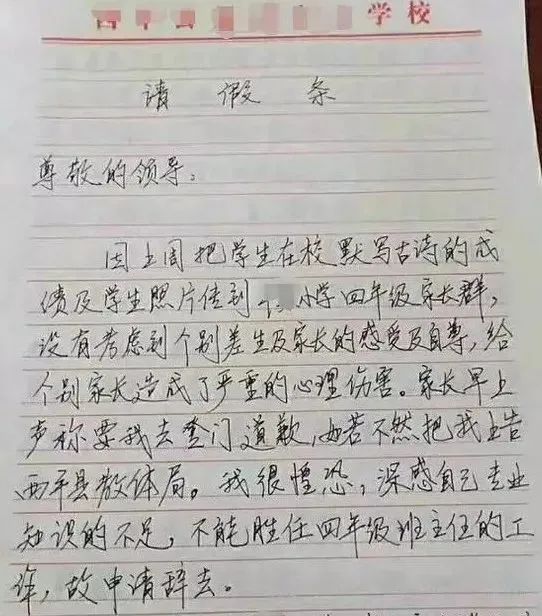 学校
请假条
尊敬的领导:
因上周把学生在校默写古诗的成
绩及学生照片传到 小学四年级家长群,
没有考虑到个别差生及家长的感受及自尊,给
个别家长造成了严重的心理伤害。家长早上
声称要我去登门道歉,如若不然把我上告
西平县教体局。我很惶恐,深感自己专业
知识的不足,不能胜任四年级班主任的工
作,故申请辞去。